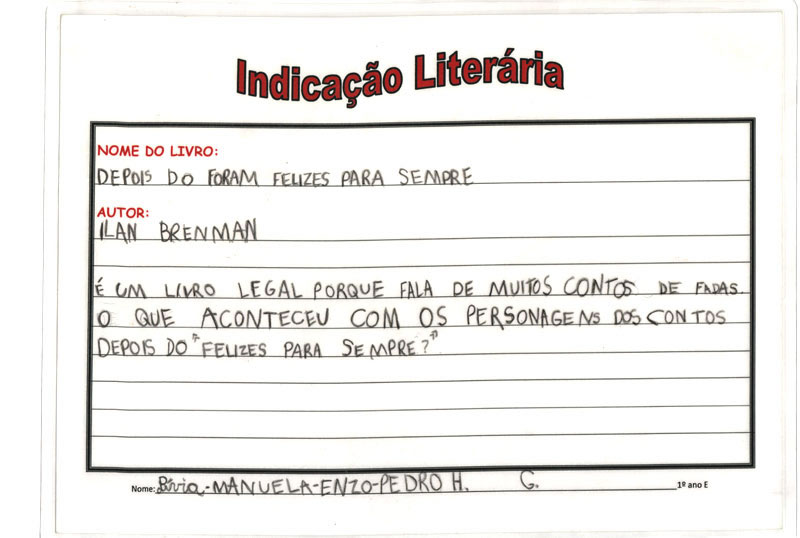 Indicação Literária
NOME DO LIVRO:
DEPOIS DO FORAM FELIZES PARA SEMPRE
AUTOR:
ILAN BRENMAN
É UM LIVRO LEGAL PORQUE FALA DE MUITOS CONTOS DE FADAS.
O QUE ACONTECEU COM OS PERSONAGENS DOS CONTOS
DEPOIS DO "FELIZES PARA SEMPRE?"
Nome: Lívia-MANUELA-ENZO-PEDRO H. G. 1º ano E